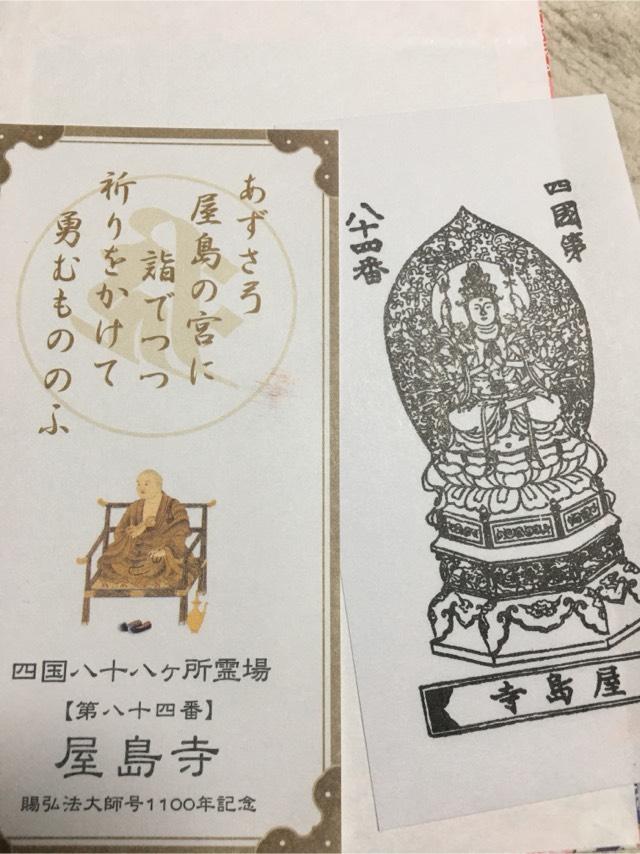 あずさ弓
屋島の宮に
詣でつつ
祈りをかけて
勇むもののふ
四国八十八ヶ所霊場
【第八十四番】
屋島寺
賜弘法大師号1100年記念
四國第
八十四番
屋島寺